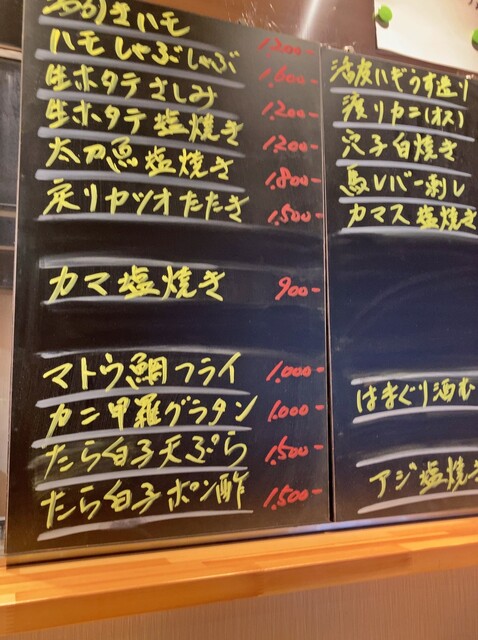 ハモ 1200-
ハモしゃぶしゃぶ 1,600-
生ホタテさしみ 1200-
生ホタテ塩焼き 1200-
太刀魚塩焼き 1,800-
戻りカツオたたき 1,500-
カマ塩焼き 900-
マトウ鯛フライ 1,000-
カニ甲羅グラタン 1,000-
たら白子天ぷら 1,500-
たら白子ポン酢 1,500-
活皮ハぎうす造り
渡リカニ(オス)
穴子白焼き
馬レバー刺し
カマス塩焼き
はまぐり酒む
アジ塩焼き